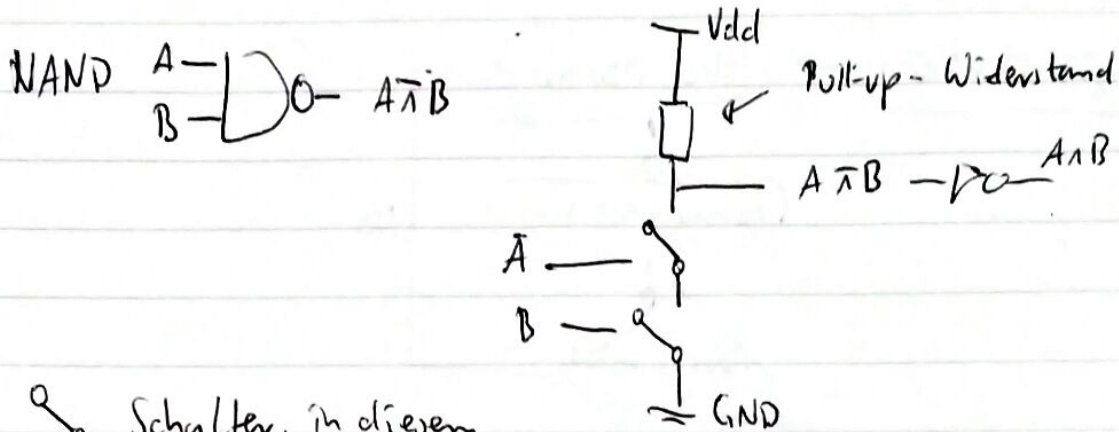 Vdd
NAND A B A ⊼ B
Pull-up-Widerstand
A ⊼ B A ∧ B
Ā
B
GND
Schalter, in diesem